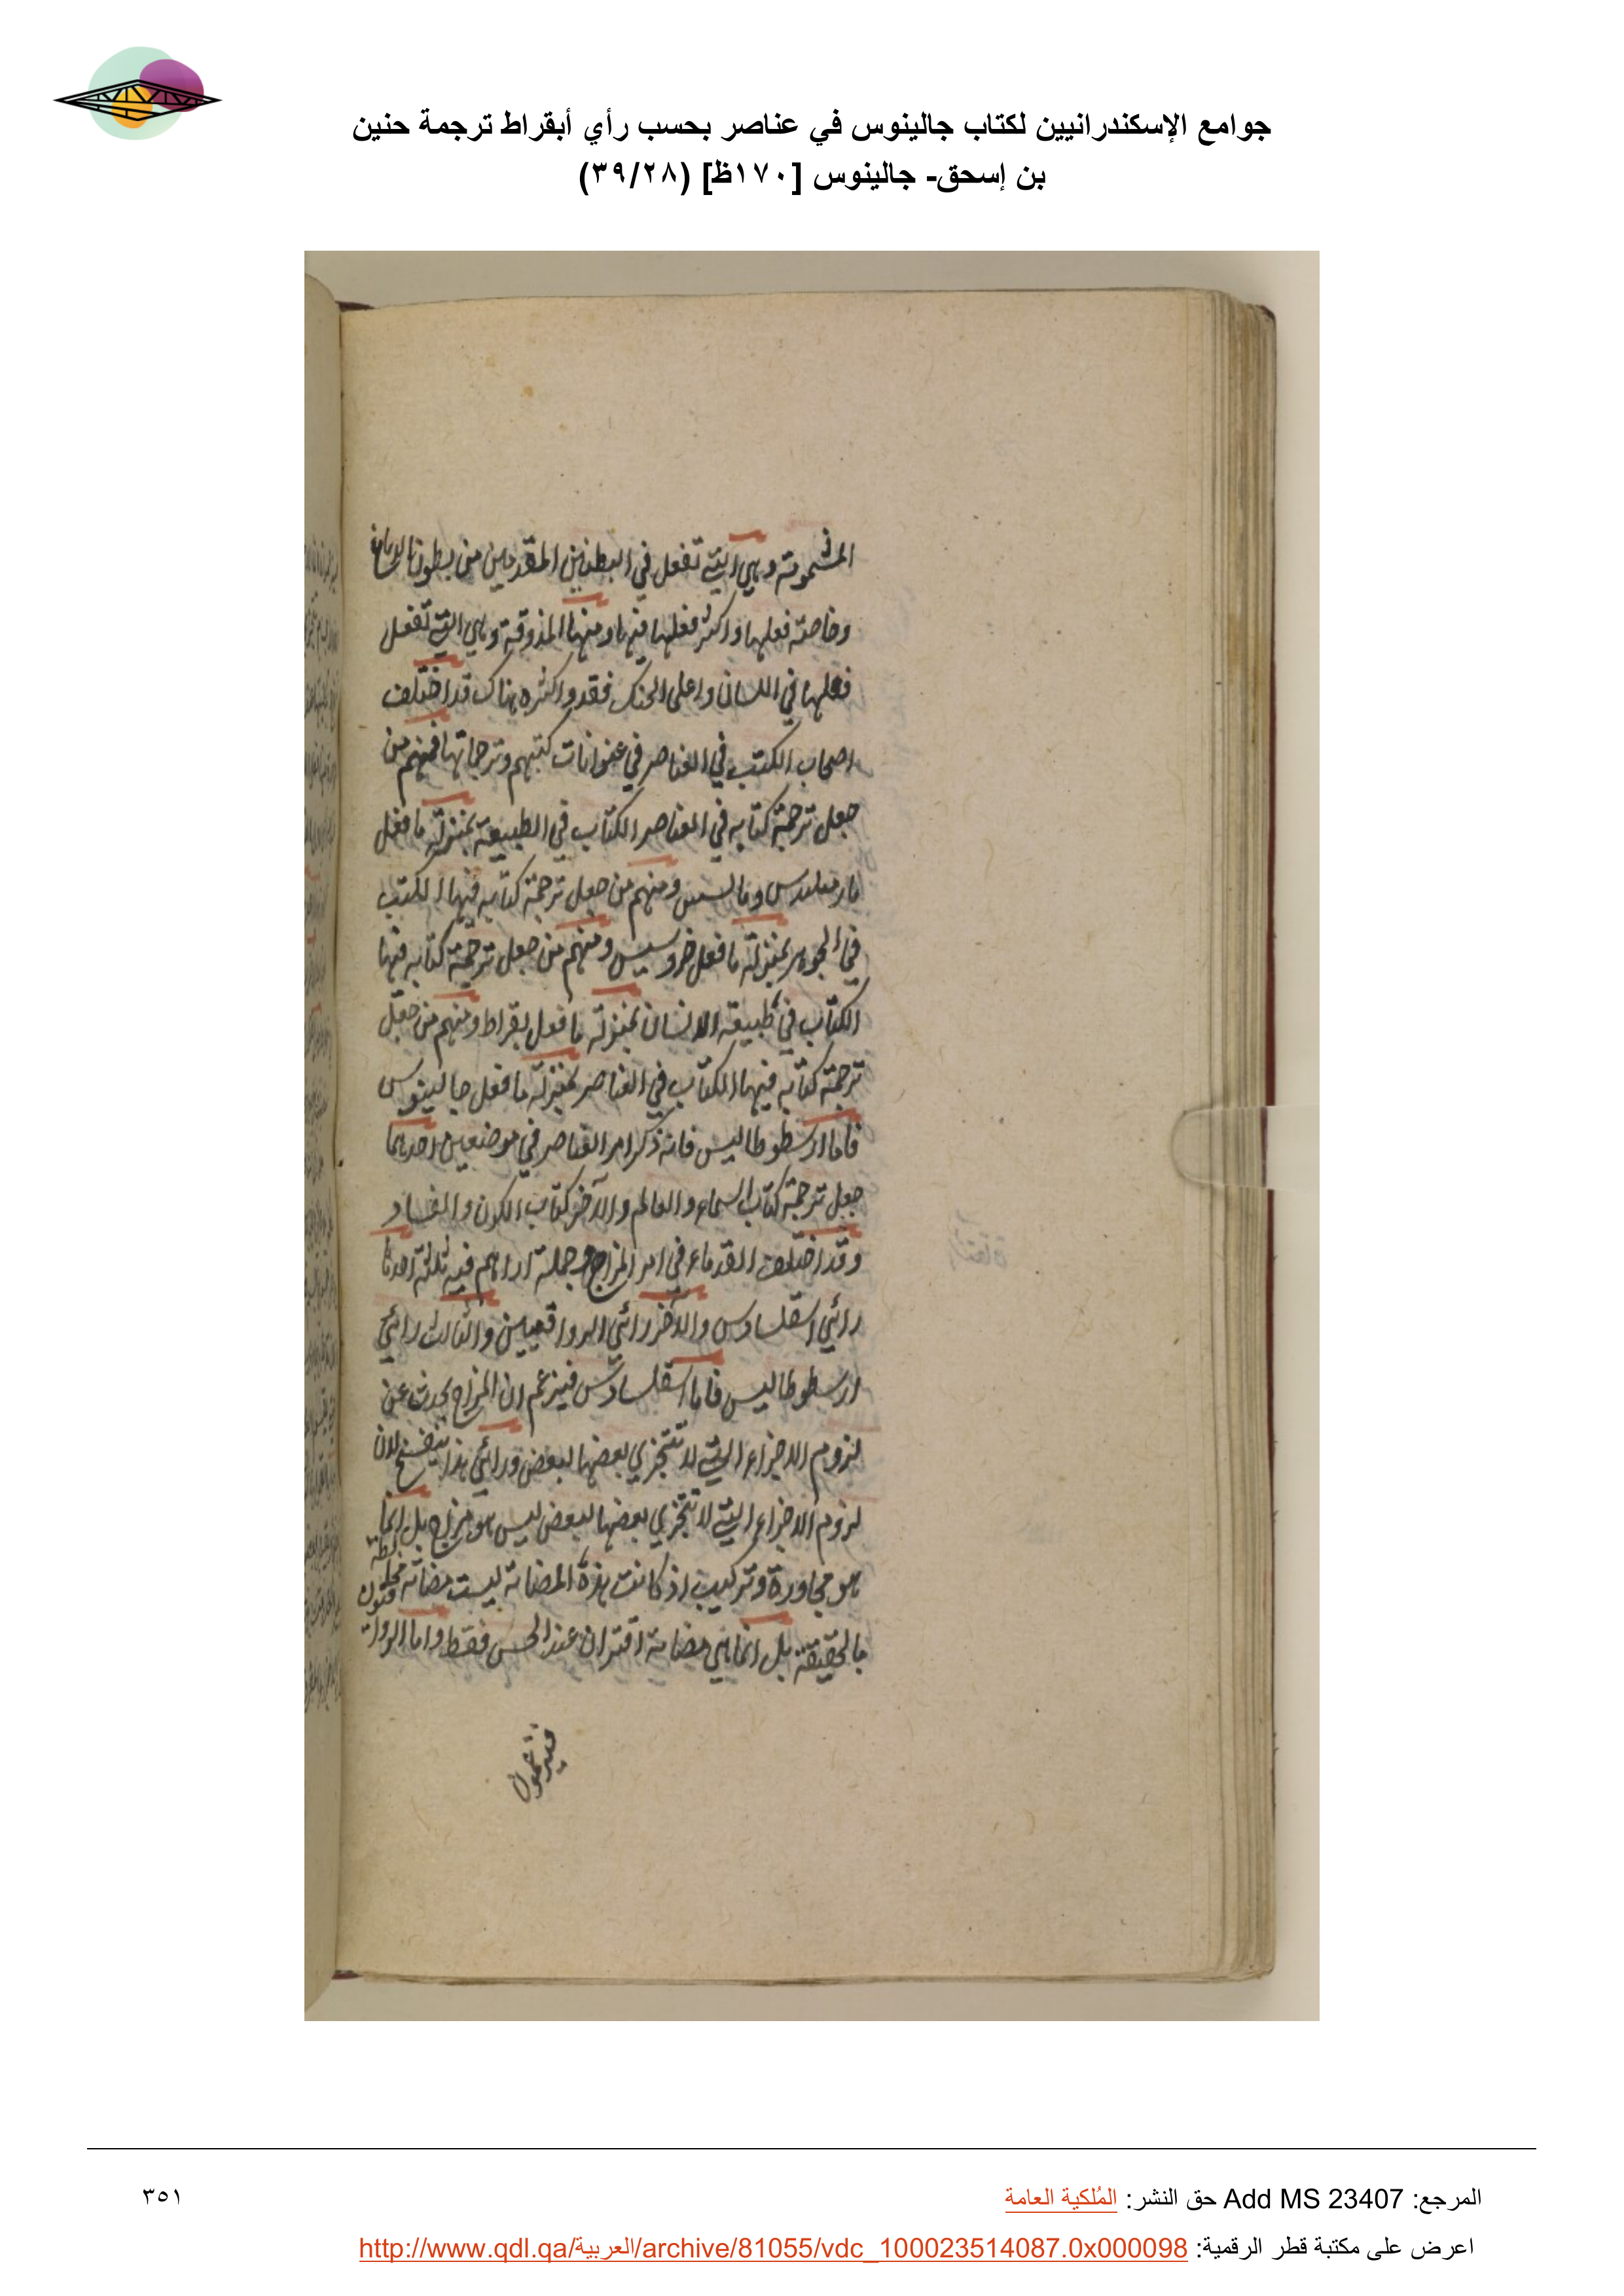 جوامع الإسكندرانيين لكتاب جالينوس في عناصر بحسب رأي أبقراط ترجمة حنين
بن إسحق- جالينوس [١٧٠ظ] (٣٩/٢٨)
المشمومة وهي التي تفعل في البطنين المقدمين من بطون الدماغ
وخاصة فعلها واكثر فعلها فيها ومنها المذوقة وهي التي تفعل
فعلها في اللسان واعلى الحنك فقد واكثره هناك قد اختلف
اصحاب الكتب في العناصر في عنوانات كتبهم وترجماتها فمنهم من
جعل ترجمة كتابه في العناصر الكتاب في الطبيعة بمنزلة ما فعل
ومنهم من جعل ترجمة كتابه فيها الكتب
في الجوهر بمنزلة ما فعل ومنهم من جعل ترجمة كتابه فيها
الكتاب في طبيعة الانسان بمنزلة ما فعل بقراط ومنهم من جعل
ترجمة كتابه فيها الكتاب في العناصر بمنزلة ما فعل جالينوس
فاما ارسطوطاليس فانه ذكر امر العناصر في موضعين احدهما
جعل ترجمة كتاب السماء والعالم والآخر كتاب الكون والفساد
وقد اختلف القدماء في امر المزاج وجملة ارائهم فيه ثلثة احدها
رائي اسقلسادس والآخر رائي الرواقيين والثالث رائي
ارسطوطاليس فاما اسقلسادس فيزعم ان المزاج يحدث عن
لزوم الاجزاء التي لا تتجزي بعضها لبعض ورائي هذا ينفسخ لان
لزوم الاجزاء التي لا تتجزي بعضها لبعض ليس هو مزاج بل انما
هو مجاورة وتركيب اذ كانت هذه المضامة ليست مضامة مخلطة
بالحقيقة بل انما هي مضامة اقتران عند الحس فقط واما الرواقيون
فيزعمون
المرجع: Add MS 23407 حق النشر: المُلكية العامة
٣٥١
اعرض على مكتبة قطر الرقمية: http://www.qdl.qa/العربية/archive/81055/vdc_100023514087.0x000098